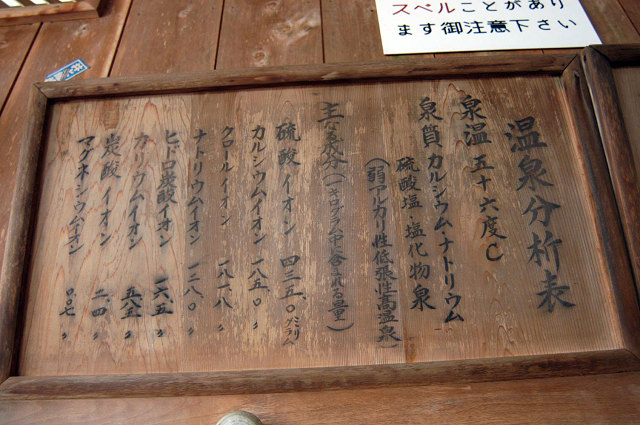 スベルことがあり
ます御注意下さい
温泉分析表
泉温 五十六度C
泉質 カルシウムナトリウム
硫酸塩・塩化物泉
(弱アルカリ性低張性高温泉)
主な成分(一キログラム中に含まれる量)
硫酸イオン 四三五.〇ミリグラム
カルシウムイオン 一八五.〇〃
クロールイオン 一八一.八〃
ナトリウムイオン 一三八.〇〃
ヒドロ炭酸イオン 一六.五〃
カリウムイオン 五.六五〃
炭酸イオン 二.四〃
マグネシウムイオン 〇.〇七〃